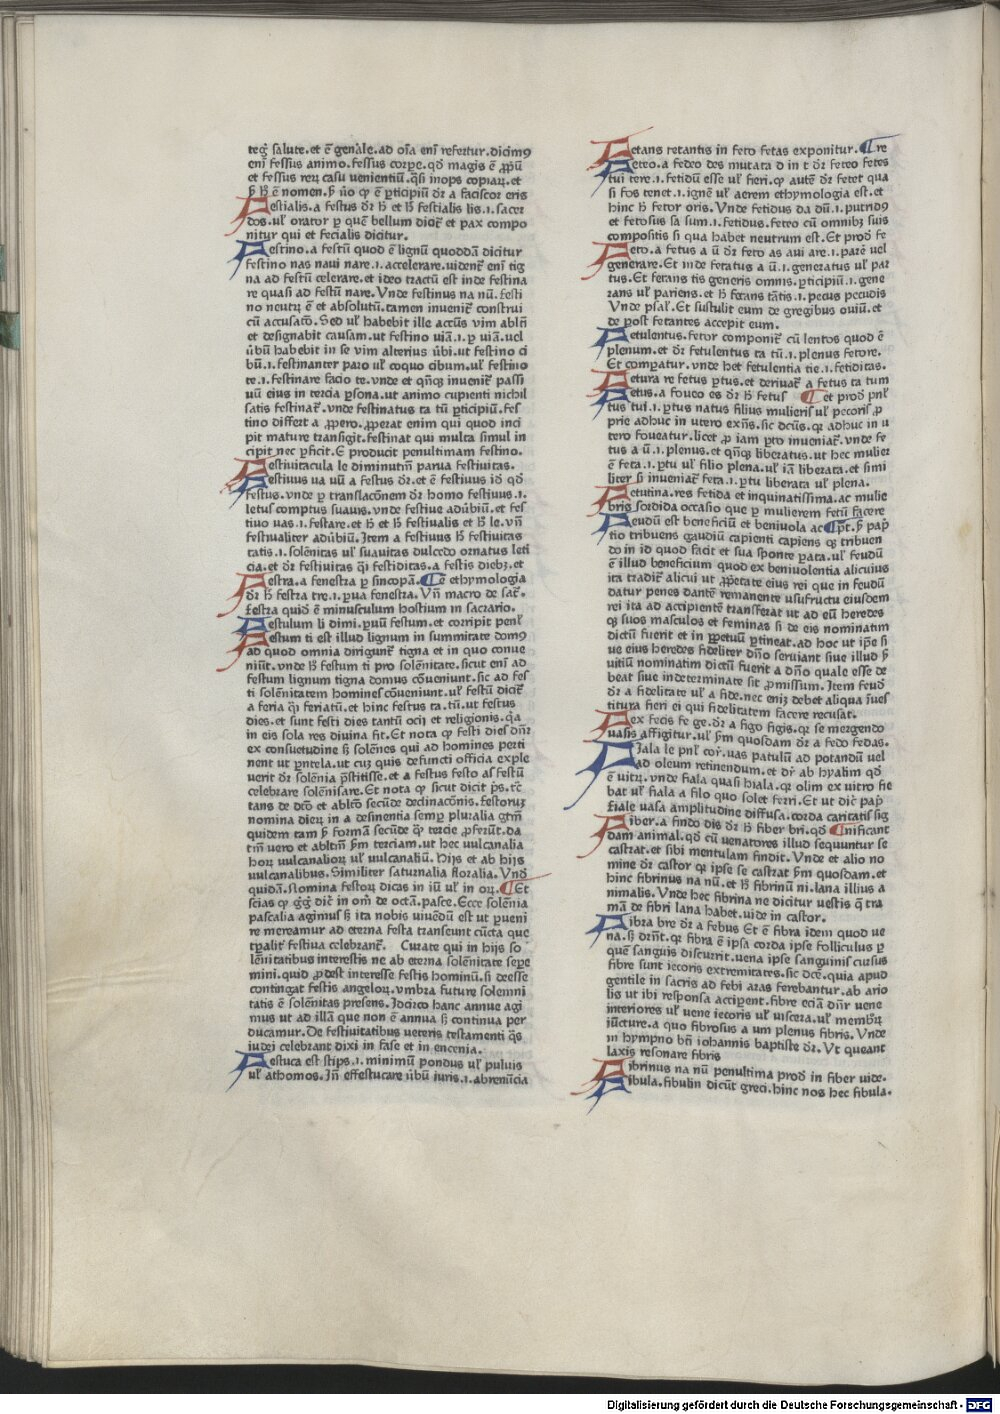 teqȝ salute.et ē genãle.ad oĩa eni refertur.dicimꝰ
eni fessus animo.fessus corpe.qđ magis ē ꝓpũ
et fessus reꝝ casu venientiũ.q̃si inops copiaꝝ.et
ꝑticipiũ dr̃ a faciscor eris
Festialis.a festus dr̃ h̃ et h̃ festialis lis.i.sacer
dos.ul̃ orator ꝑ quē bellum dicit̃ et pax compo
nitur qui et fecialis dicitur.
Festino.a festũ quod ē lignũ quoddā dicitur
festino nas naui nare.i.accelerare.vident̃ eni tig
na ad festũ celerare.et ideo tractũ est inde festina
re quasi ad festũ nare.Vnde festinus na nũ.festi
no neutꝝ ē et absolutũ.tamen inuenit̃ construi
cũ accusatõ.Sed ul̃ habebit ille accũs vim ablñ
et designabit causam.ut festino uiā.i.ꝑ uiā.uel
ũbũ habebit in se vim alterius ũbi.ut festino ci
bũ.i.festinanter paro ul̃ coquo cibum.ul̃ festino
te.i.festinare facio te.vnde et qñqȝ inuenit̃ passi
uũ eius in tercia ꝑsona.ut animo cupienti nichil
satis festinat̃.vnde festinatus ta tũ ꝑticipiũ.fes
tino differt a ꝓpero.ꝓperat enim qui quod inci
pit mature transigit.festinat qui multa simul in
cipit nec ꝑficit.E producit penultimam festino.
Festiuitacula le diminutiũ parua festiuitas.
Festiuus ua uũ a festus dr̃.et ē festiuus id qđ
festus.vnde ꝑ translacõnem dr̃ homo festiuus.i.
letus comptus suauis.vnde festiue adũbiũ.et fes
tiuo uas.i.festare.et h̃ et h̃ festiualis et h̃ le.vñ
festiualiter adũbiũ.Item a festiuus h̃ festiuitas
tatis.i.solēnitas ul̃ suauitas dulcedo ornatus leti
cia.et dr̃ festiuitas q̃i festiditas.a festis diebȝ.et
Festra.a fenestra ꝑ sincopā. ¶ ē ethymologia
dr̃ h̃ festra tre.i.ꝑua fenestra.Vñ macro de sat̃.
festra quid ē minusculum hostium in sacrario.
Festulum li dimi.ꝑuũ festum.et corripit penl̃
Festum ti est illud lignum in summitate domꝰ
ad quod omnia dirigunt̃ tigna et in quo conue
niũt.vnde h̃ festum ti pro solēnitate.sicut eni ad
festum lignum tigna domus cõueniunt.sic ad fes
ti solēnitatem homines cõueniunt.ul̃ festũ dicit̃
a feria q̃i feriatũ.et hinc festus ta.tũ.ut festus
dies.et sunt festi dies tantũ ocij et religionis.q̃a
in eis sola res diuina fit.Et nota ꝙ festi dies dñr
ex consuetudine ꝫ solēnes qui ad homines perti
nent ut ꝑntela.ut cuȝ quis defuncti officia exple
uerit dr̃ solēnia p̃stitisse.et a festus festo as festũ
celebrare solēnisare.Et nota ꝙ sicut dicit p̃s.tc̃
tans de dc̃o et ablc̃o secũde declinacõnis.festoruȝ
nomina dieꝝ in a desinentia semꝑ pluralia gtm̃
quidem tam p̃ formā secũde q̃ tercie ꝓferũt.da
tm̃ vero et abltm̃ ẜm terciam.ut hec vulcanalia
hoꝝ uulcanalioꝝ ul̃ vulcanaliũ.Hijs et ab hijs
uulcanalibus.Similiter saturnalia floralia.Vnđ
quidā.Nomina festoꝝ dicas in iũ ul̃ in oꝝ. ¶ Et
scias ꝙ g̃g̃ dic̃ in om̃ de octā.pasce.Ecce solēnia
pascalia agimus ꝫ ita nobis uiuēdũ est ut ꝑueni
re mereamur ad eterna festa transeunt cũcta que
tꝑalit̃ festiua celebrant̃. Curate qui in hijs so
lēnitatibus interestis ne ab eterna solēnitate sepe
mini.quid ꝓdest interesse festis hominũ.si deesse
contingat festis angeloꝝ.vmbra future solemni
tatis ē solēnitas presens.Idcirco hanc annue agi
mus ut ad illā que non ē annua ꝫ continua per
ducamur.De festiuitatibus ueteris testamenti q̃s
iudei celebrant dixi in fase et in encenia.
Festuca est stips.i.minimũ pondus ul̃ puluis
ul̃ athomos.Iñ effestucare ũbũ iuris.i.abrenũcia
Fetans tetantis in feto fetas exponitur. ¶ re
Feteo.a fedeo des mutata d in t dr̃ feteo fetes
tui tere.i.fetidũ esse ul̃ fieri.ꝙ autē dr̃ fetet qua
si fos tenet.i.ignē ul̃ aerem ethymologia est.et
hinc h̃ fetor oris.Vnde fetidus da dũ.i.putridꝰ
et fetosus sa sum.i.fetidus.feteo cũ omnibȝ suis
compositis si qua habet neutrum est.Et prođ fe
Feto.a fetus a ũ dr̃ feto as aui are.i.parē uel
generare.Et inde fetatus a ũ.i.generatus ul̃ par
tus.Et fetans tis generis omnis.ꝑticipiũ.i.gene
rans ul̃ pariens.et h̃ fetans tātis.i.pecus pecudis
Vnde psal̃.Et sustulit eum de gregibus ouiũ.et
de post fetantes accepit eum.
Fetulentus.fetor componit̃ cũ lentos quod ē
plenum.et dr̃ fetulentus ta tũ.i.plenus fetore.
Et comꝑatur.vnde het fetulentia tie.i.fetiditas.
Fetura re fetus ꝑtus.et deriuat̃ a fetus ta tum
Fetus.a foueo es dr̃ h̃ fetus ¶ et prođ pnl̃
tus tui.i.ꝑtus natus filius mulieris ul̃ pecoris ꝓ
prie adhuc in utero exñs.sic dc̃us.qꝛ adhuc in u
tero foueatur.licet ꝓ iam ꝑto inueniat̃.vnde fe
tus a ũ.i.plenus.et qñqȝ liberatus.ut hec mulier
ē feta.i.ꝑtu ul̃ filio plena.ul̃ iā liberata.et simi
liter si inueniat̃ feta.i.ꝑtu liberata ul̃ plena.
Fetutina.res fetida et inquinatissima.ac mulie
bris sordida occasio que ꝑ mulierem fetũ facere
Feudũ est beneficiũ et beniuola ac ¶ p̃t.ẜ pap̃
tio tribuens gaudiũ capienti capiens qȝ tribuen
do in id quod facit et sua sponte ꝑata.ul̃ feudũ
ē illud beneficium quod ex beniuolentia alicuius
ita tradit̃ alicui ut ꝓpetate eius rei que in feudũ
datur penes dantē remanente usufructu eiusdem
rei ita ad accipientē transferat ut ad eũ heredes
qȝ suos masculos et feminas si de eis nominatim
dictũ fuerit et in ꝑpetuũ ꝑtineat.ad hoc ut ip̃e si
ue eius heredes fideliter dño seruiant siue illud ẜ
uitiũ nominatim dictũ fuerit a dño quale esse de
beat siue indeterminate sit ꝓmissum.Item feuđ
dr̃ a fidelitate ul̃ a fide.nec eniȝ debet aliqua ĩues
titura fieri ei qui fidelitatem facere recusat.
Fex fecis fe ge.dr̃ a figo figis.qꝛ se mergendo
uasis affigitur.ul̃ ẜm quosdam dr̃ a fedo fedas.
Fiala le pnl̃ cor̃.uas patulũ ad potandũ uel
ad oleum retinendum.et dr̃ ab hyalin qđ
ē uitꝝ.vnde fiala quasi hiala.qꝛ olim ex uitro fie
bat ul̃ fiala a filo quo solet ferri.Et ut dic̃ pap̃
fiale uasa amplitudine diffusa.corda caritatis sig
Fiber.a findo dis dr̃ h̃ fiber bri.qđ ¶ nificant
dam animal.qđ cũ venatores illud sequuntur se
castrat.et sibi mentulam findit.Vnde et alio no
mine dr̃ castor qꝛ ipse se castrat ẜm quosdam.et
hinc fibrinus na nũ.et h̃ fibrinũ ni.lana illius a
nimalis.Vnde hec fibrina ne dicitur uestis q̃ tra
mā de fibri lana habet.uide in castor.
Fibra bre dr̃ a febus Et ē fibra idem quod ue
na.ꝫ drñt.qꝛ fibra ē ipsa corda ipse folliculus ꝑ
quē sanguis discurrit.uena ipse sanguinis cursus
fibre sunt iecoris extremitates.sic dcē.quia apud
gentile in sacris ad febi aras ferebantur.ab ario
lis ut ibi responsa accipent.fibre eciā dñr uene
interiores ul̃ uene iecoris ul̃ uiscera.ul̃ membꝝ
iũcture.a quo fibrosus a um plenus fibris.Vnde
in hympno bñ iohannis baptiste dr̃.Vt queant
laxis resonare fibris
Fibrinus na nũ penultima prođ in fiber uide.
Fibula.fibulin dicũt greci.hinc nos hec fibula.
Digitalisierung gefördert durch die Deutsche Forschungsgemeinschaft - DFG